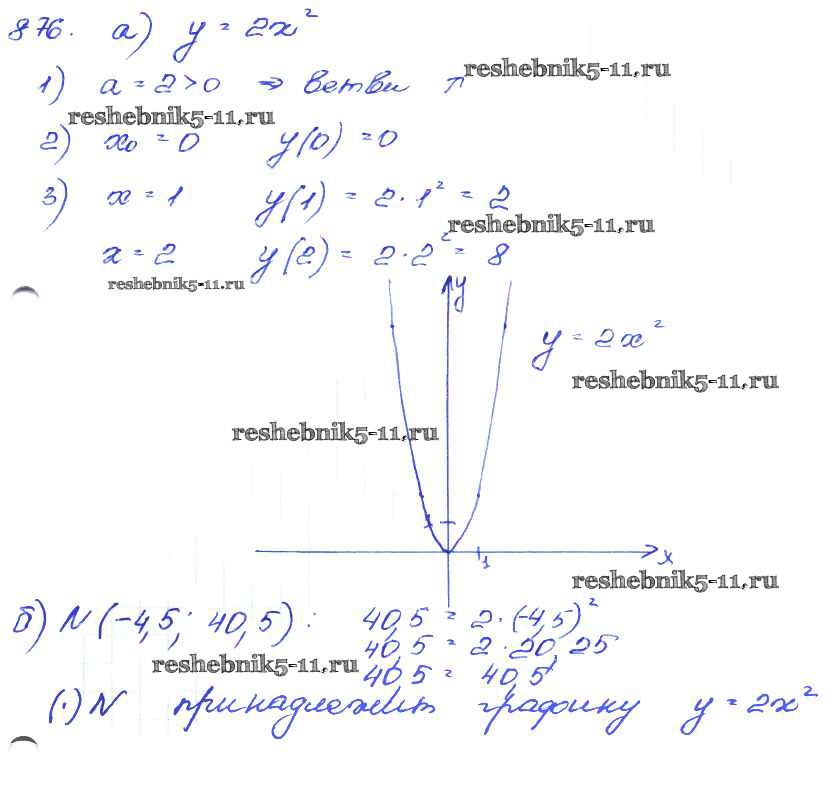 876. а) y = 2x²
1) a = 2 > 0 ⇒ ветви ↑
reshebnik5-11.ru
reshebnik5-11.ru
2) x₀ = 0 y(0) = 0
3) x = 1 y(1) = 2·1² = 2
reshebnik5-11.ru
x = 2 y(2) = 2·2² = 8
reshebnik5-11.ru
y
y = 2x²
reshebnik5-11.ru
reshebnik5-11.ru
1
x
1
reshebnik5-11.ru
б) N (-4,5; 40,5): 40,5 = 2·(-4,5)²
40,5 = 2·20,25
reshebnik5-11.ru
40,5 = 40,5
(·) N принадлежит графику y = 2x²